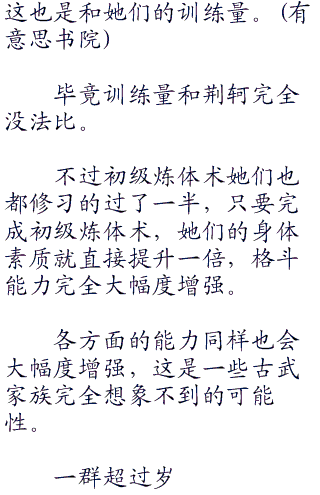 这也是和她们的训练量。(有
意思书院)
毕竟训练量和荆轲完全
没法比。
不过初级炼体术她们也
都修习的过了一半，只要完
成初级炼体术，她们的身体
素质就直接提升一倍，格斗
能力完全大幅度增强。
各方面的能力同样也会
大幅度增强，这是一些古武
家族完全想象不到的可能
性。
一群超过岁